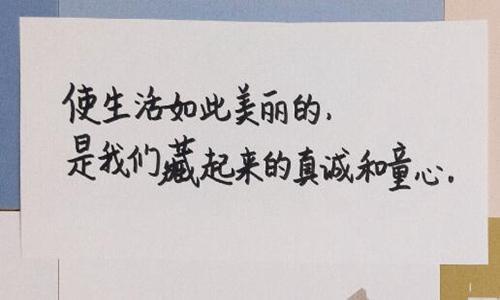 使生活如此美丽的,
是我们藏起来的真诚和童心.